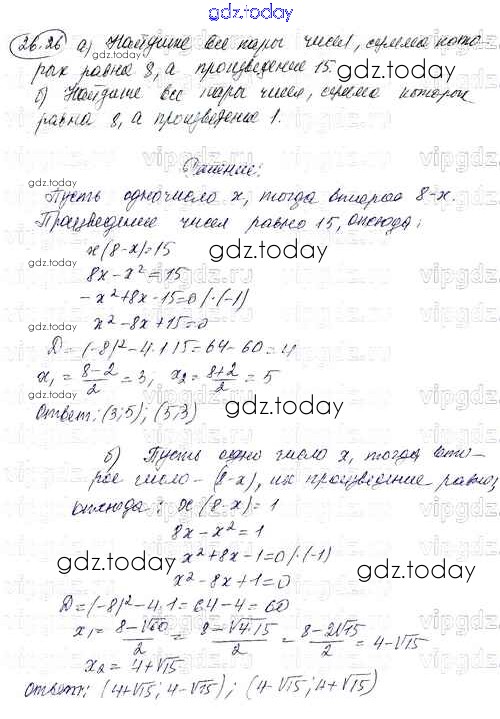 gdz.today
26.26 а) Найдите все пары чисел, сумма кото-
рых равна 8, а произведение 15.
б) Найдите все пары чисел, сумма которых
равна 8, а произведение 1.
Решение:
Пусть одно число x, тогда второе 8-x.
Произведение чисел равно 15, отсюда:
x(8-x)=15
8x-x²=15
-x²+8x-15=0/·(-1)
x²-8x+15=0
D=(-8)²-4·1·15=64-60=4
x₁=(8-2)/2=3; x₂=(8+2)/2=5
Ответ: (3;5); (5;3)
б) Пусть одно число x, тогда вто-
рое число - (8-x), их произведение равно 1,
отсюда: x(8-x)=1
8x-x²=1
-x²+8x-1=0/·(-1)
x²-8x+1=0
D=(-8)²-4·1=64-4=60
x₁=(8-√60)/2=(8-√4·15)/2=(8-2√15)/2=4-√15
x₂=4+√15
Ответ: (4+√15; 4-√15); (4-√15; 4+√15)